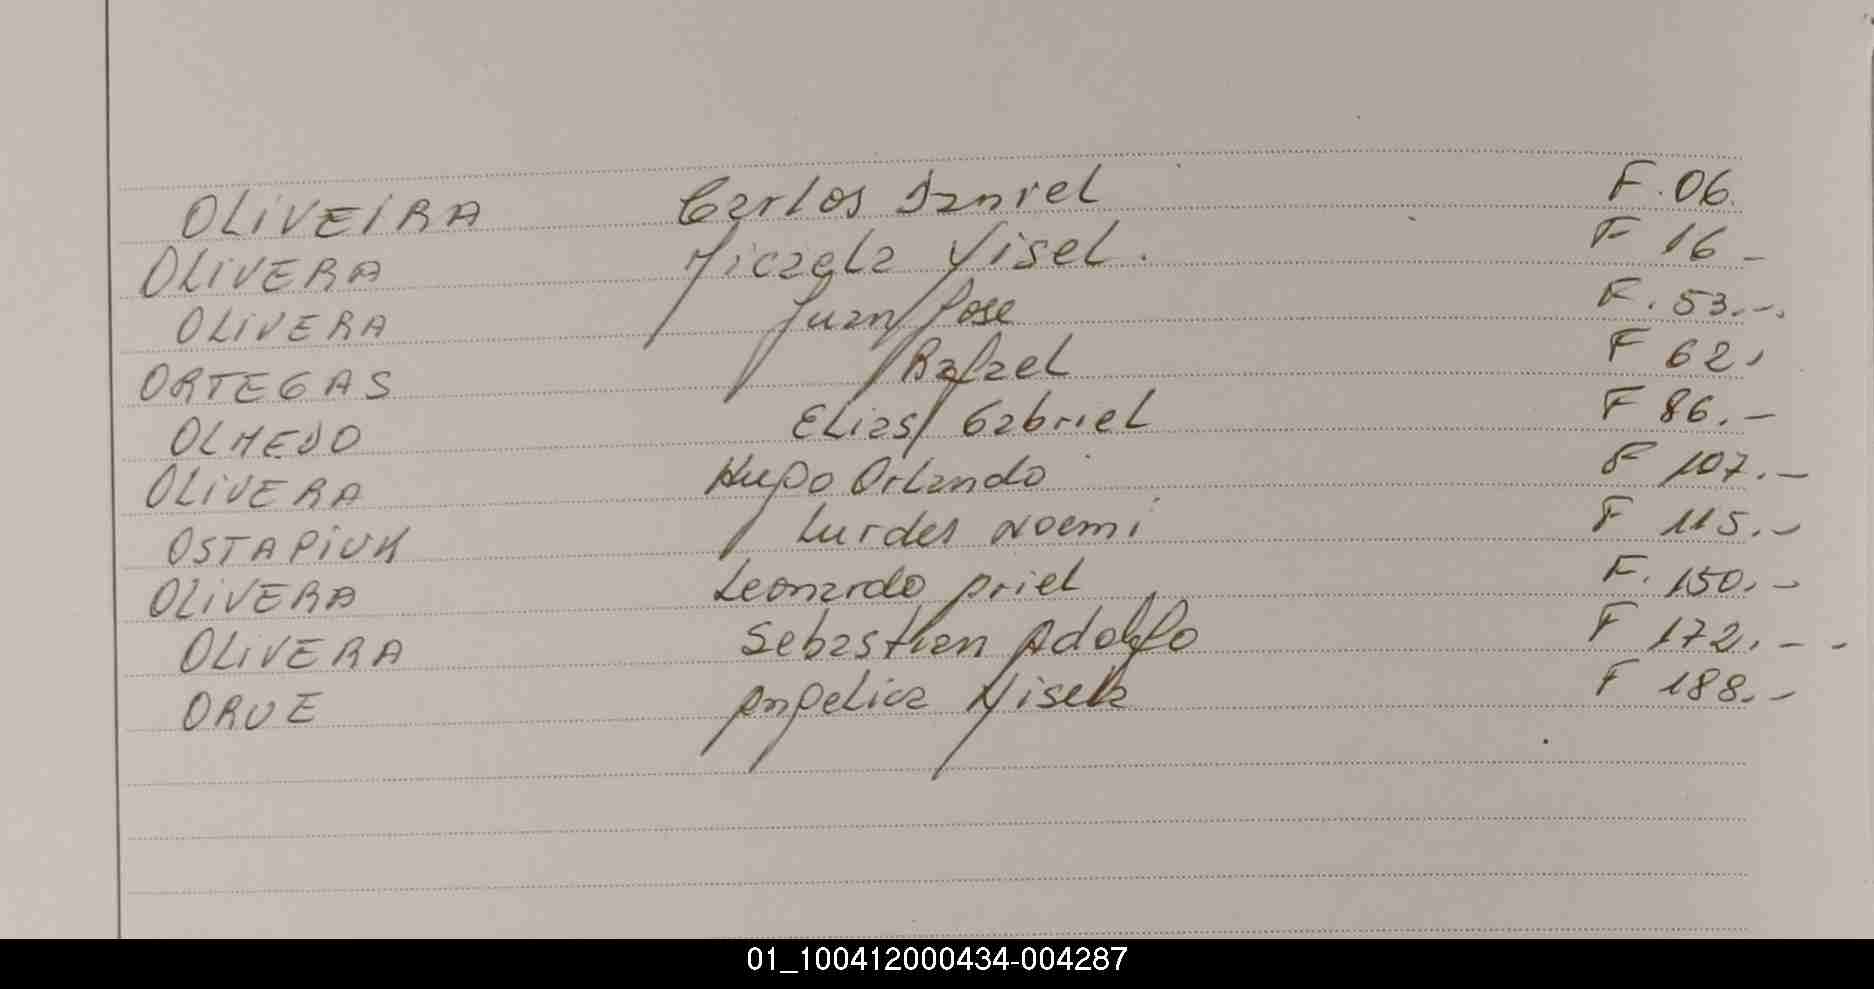 OLIVEIRA Carlos Daniel F. 06.
OLIVERA Micaela Yisel. F 16 -
OLIVERA Juan Jose F. 53.-.
ORTEGAS Rafael F 62.
OLMEDO Elias Gabriel F 86.-
OLIVERA Hugo Orlando F 107.-
OSTAPIUK Lurdes Noemi F 115.-
OLIVERA Leonardo Ariel F. 150.-
OLIVERA Sebastian Adolfo F 172.- -
ORUE Angelica Yisela F 188.-
01_100412000434-004287